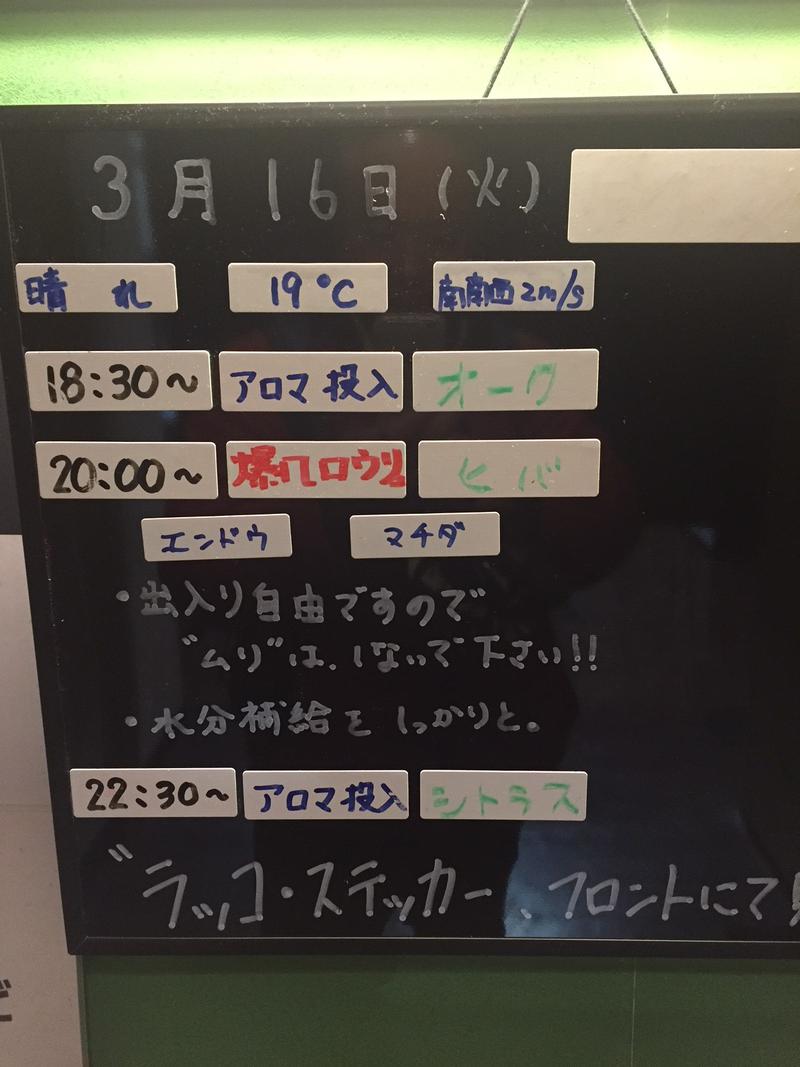 3月16日(火)
晴れ 19℃ 南南西2m/s
18:30〜 アロマ投入 オーク
20:00〜 爆汗ロウリュ ヒバ
エンドウ マチダ
・出入り自由ですので
"ムリ"は、しないで下さい!!
・水分補給をしっかりと。
22:30〜 アロマ投入 シトラス
"ラッコ・ステッカー、フロントにて